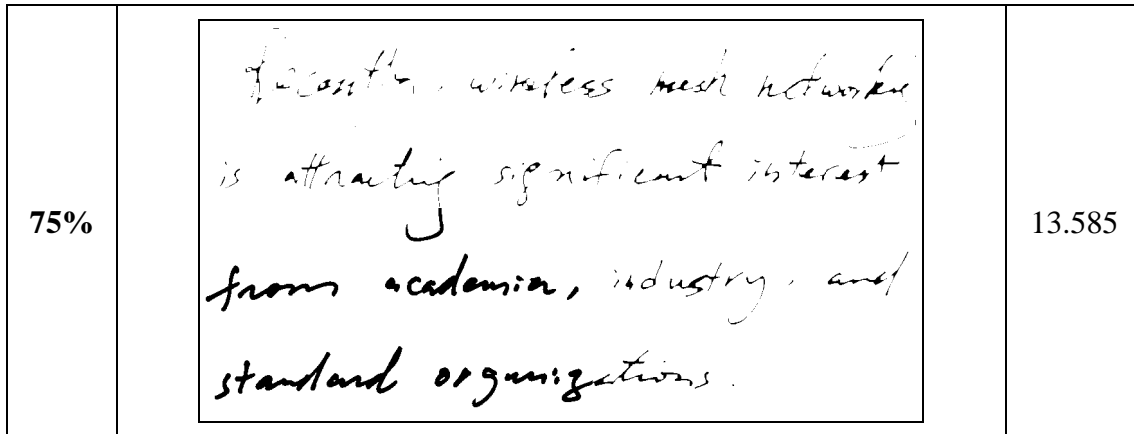 75%
Recently, wireless mesh networking
is attracting significant interest
from academia, industry, and
standard organizations.
13.585